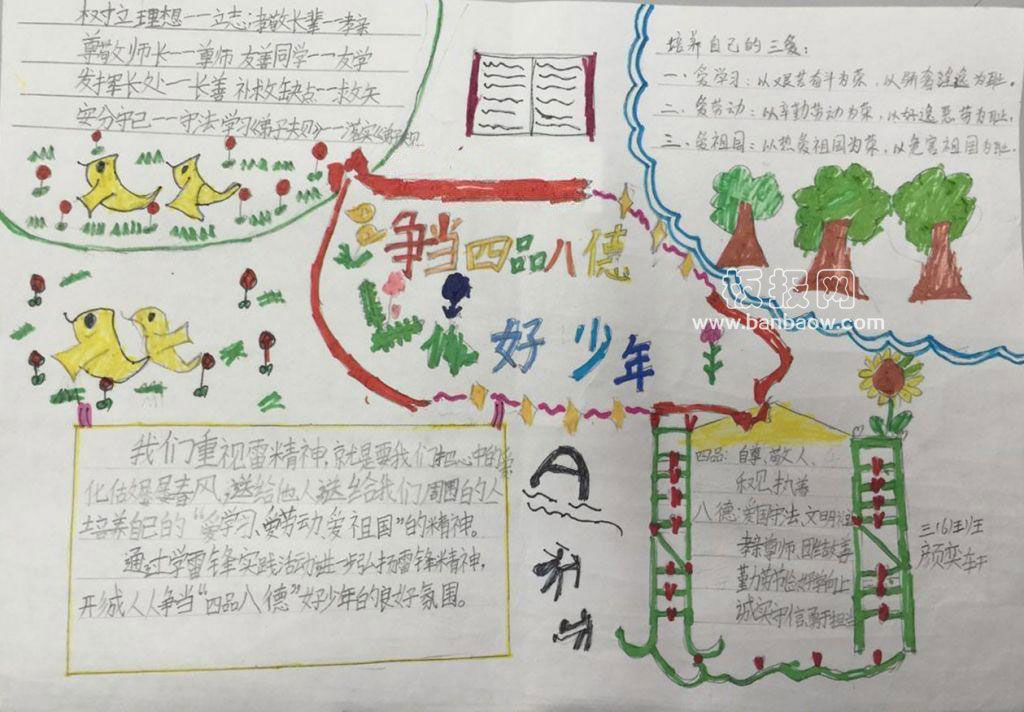 树立理想——立志 孝敬长辈—孝亲
尊敬师长——尊师 友善同学——友学
发挥长处——长善 补救缺点——救失
安分守己——守法 学习《弟子规》——落实《弟子规》
培养自己的三爱:
一、爱学习:以艰苦奋斗为荣,以骄奢淫逸为耻。
二、爱劳动:以辛勤劳动为荣,以好逸恶劳为耻。
三、爱祖国:以热爱祖国为荣,以危害祖国为耻。
争当四品八德
做好少年
板报网
www.banbaow.com
我们重视雷精神,就是要我们把心中的爱
化作春风,送给他人送给我们周围的人
培养自己的“爱学习、爱劳动、爱祖国”的精神。
通过学雷锋实践活动进一步弘扬雷锋精神,
形成人人争当“四品八德”好少年的良好氛围。
四品:自尊、敬人、
八德:爱国守法、文明
孝亲尊师、团结友善
勤劳节俭、好学向上
诚实守信、勇于担当
三(6)班